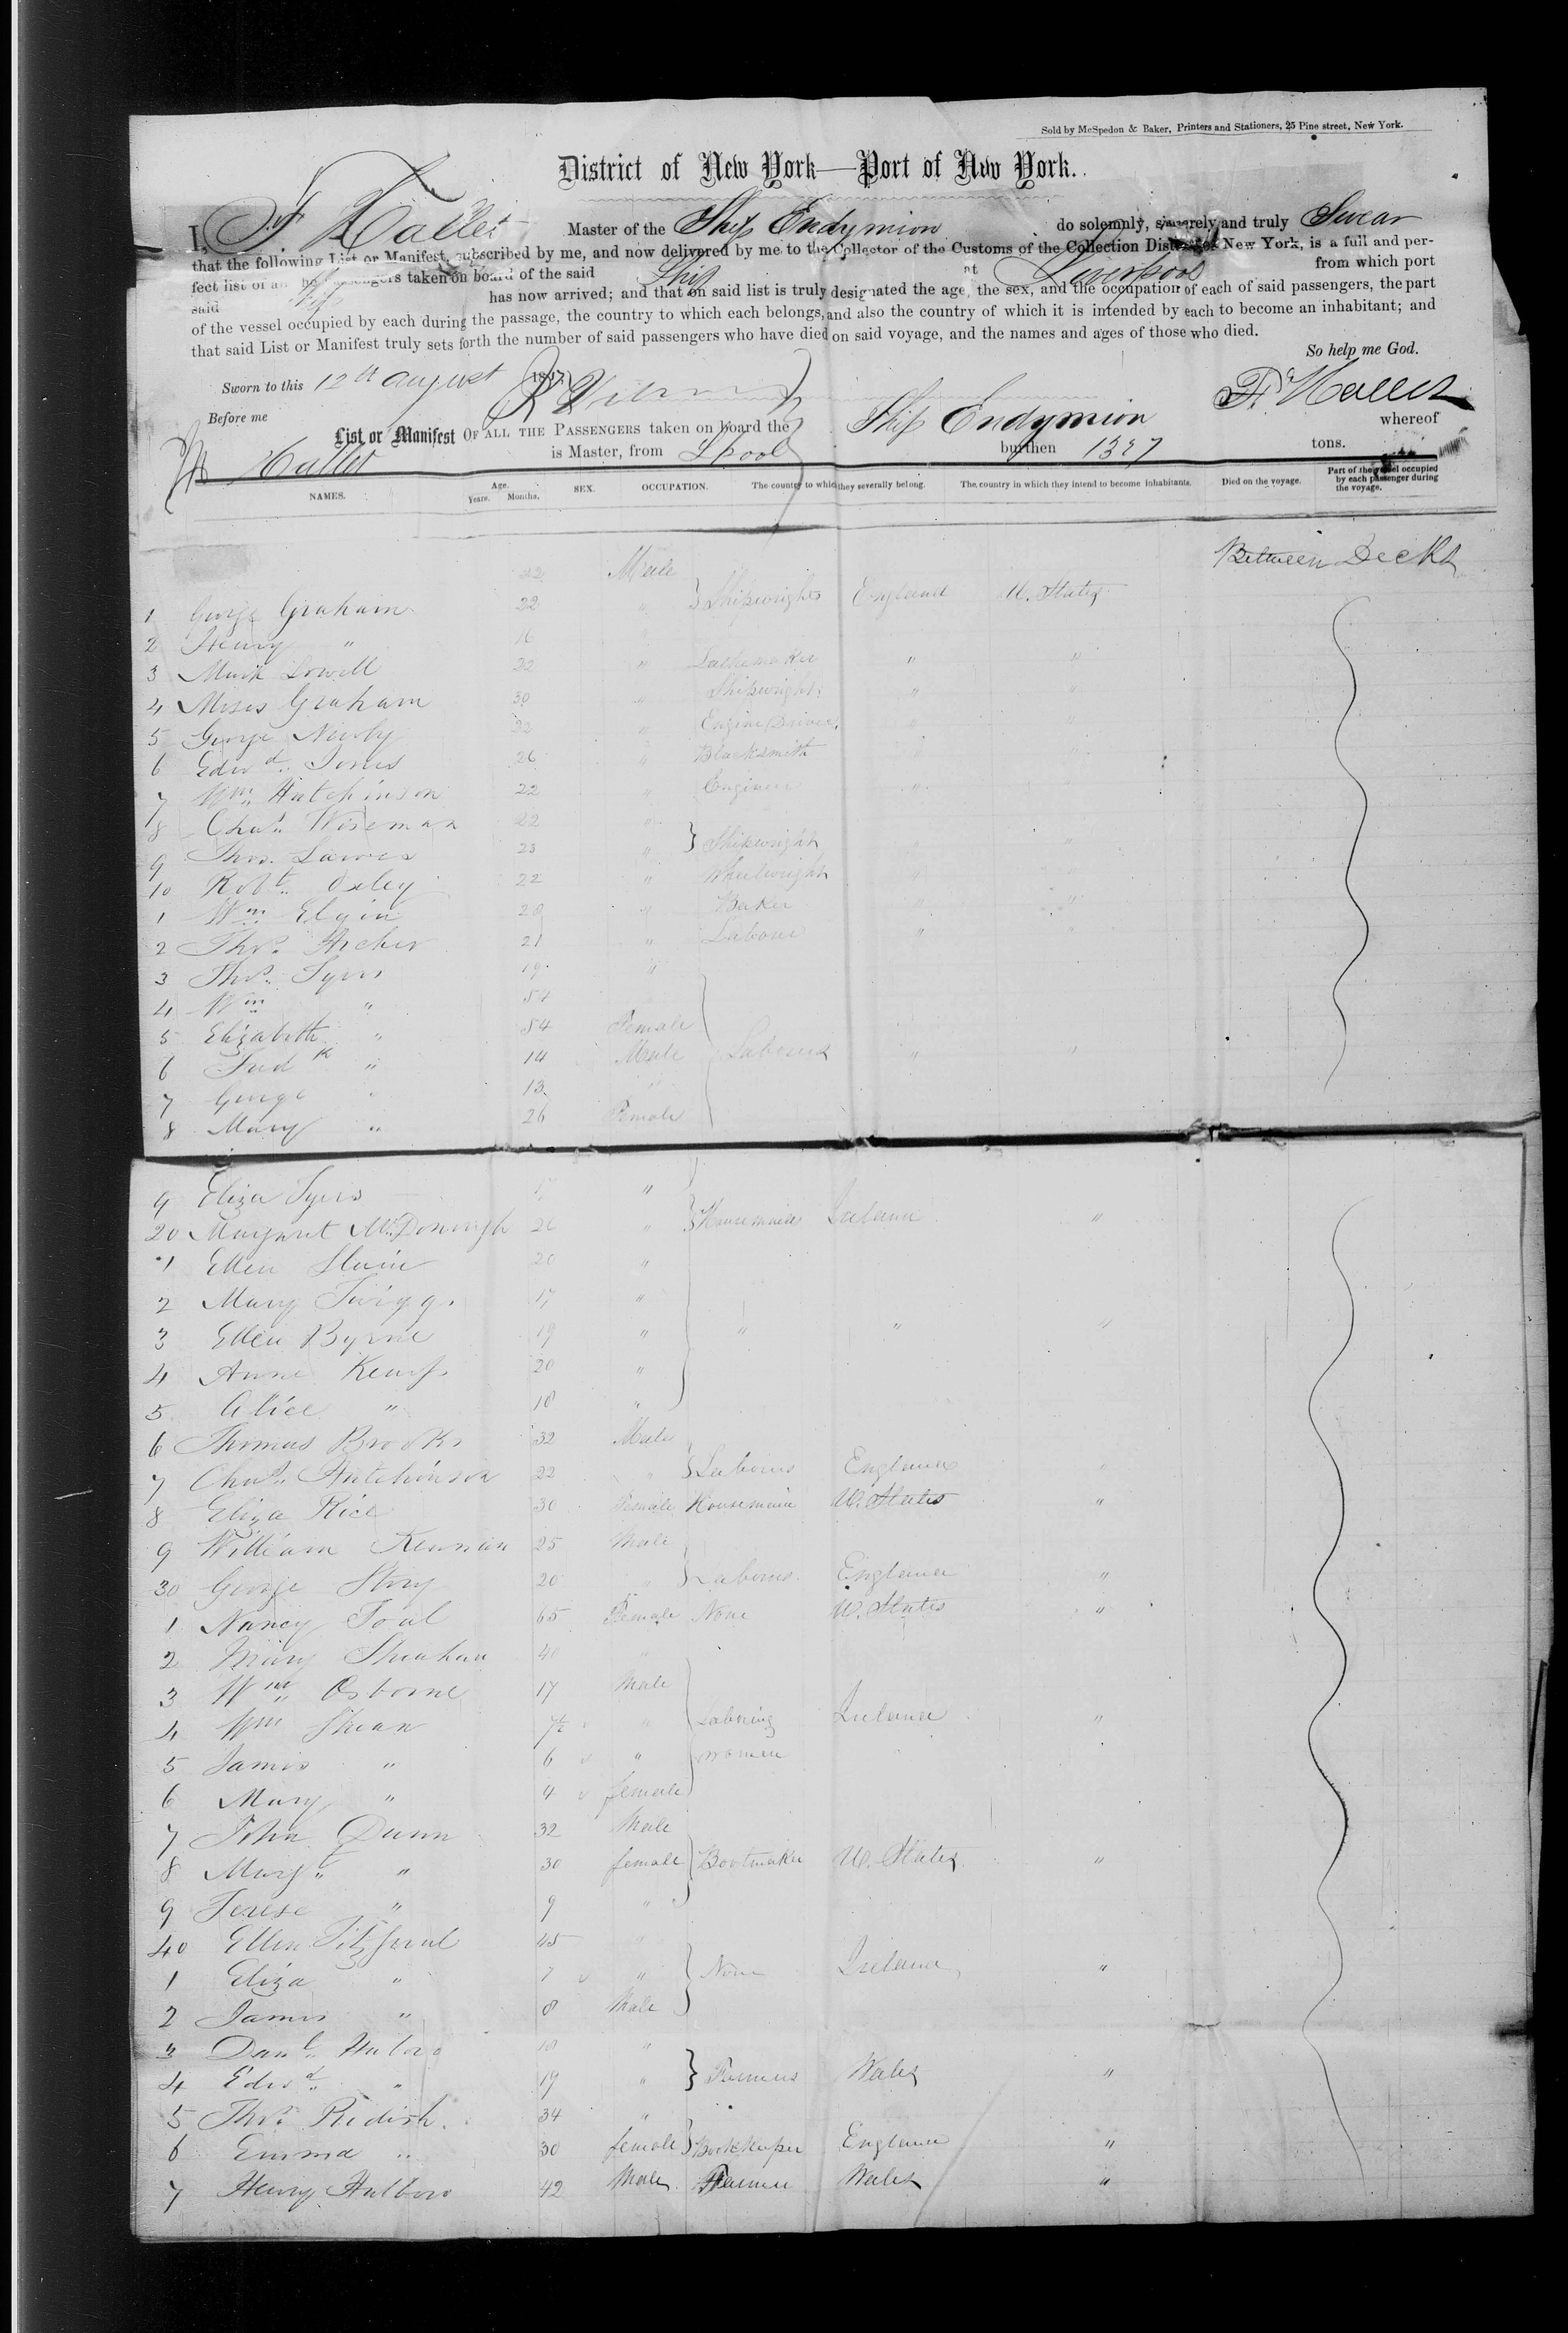 Sold by McSpedon & Baker, Printers and Stationers, 25 Pine street, New York.
District of New York—Port of New York.
I, F. Hallet Master of the Ship Endymion do solemnly, sincerely and truly Swear
that the following List or Manifest, subscribed by me, and now delivered by me to the Collector of the Customs of the Collection District of New York, is a full and per-
fect list of all the passengers taken on board of the said Ship at Liverpool from which port
said Ship has now arrived; and that on said list is truly designated the age, the sex, and the occupation of each of said passengers, the part
of the vessel occupied by each during the passage, the country to which each belongs, and also the country of which it is intended by each to become an inhabitant; and
that said List or Manifest truly sets forth the number of said passengers who have died on said voyage, and the names and ages of those who died.
So help me God.
Sworn to this 12th August
F. Hallet
Before me
List or Manifest OF ALL THE PASSENGERS taken on board the Ship Endymion whereof
Hallet is Master, from Lpool burthen 1327 tons.
NAMES. Age. Years. Months. SEX. OCCUPATION. The country to which they severally belong. The country in which they intend to become inhabitants. Died on the voyage. Part of the vessel occupied by each passenger during the voyage.
Male Between Decks
1 George Graham 22 " } Shipwrights England U. States
2 Henry " 16
3 Mark Lowell 22 " "  "
4 Moses Graham 30 " Shipwright " "
5 George Newby 22 " Engine Driver " "
6 Edwd. Jones 26 " Blacksmith " "
7 Wm. Hutchinson 22 " Engineer "
8 Chas. Wiseman 22 "
9 Thos. Lawes 23 " } Shipwright " "
10 Robt. Oxley 22 " Wheelwright " "
1 Wm. Elgin 28 " Baker " "
2 Thos. Archer 21 " Labour " "
3 Thos. Tyers 19 "
4 Wm " 54
5 Elizabeth " 54 Female
6 Fredk " 14 Male Labourers " "
7 George " 13 "
8 Mary " 26 Female
9 Eliza Tyers 17 "
20 Margaret McDonough 26 " } Housemaid Ireland "
1 Ellen 20 "
2 Mary Twigg 17 "
3 Ellen Byrne 19 " " " "
4 Anne Kemp 20 "
5 Alice " 18 "
6 Thomas Brooks 32 Male
7 Chas. Hutchinson 22 " } Labours England "
8 Eliza Rice 30 Female Housemaid U. States "
9 William Keenan 25 Male
30 George Story 20 " } Labours England "
1 Nancy Toal 65 Female None U. States "
2 Mary Sheahan 40 "
3 Wm. Osborne 17 Male
4 Wm Shean " Laboring Ireland "
5 James " 6 " women
6 Mary " 4 female
7 John Dunn 32 Male
8 Margt. " 30 female Bootmaker U. States "
9 Terese " 9 "
40 Ellen Fitzgerald 45 "
1 Eliza " 7 " } None Ireland "
2 James " 8 Male
3 Danl. 18 "
4 Edwd. " 19 " } Farmers Wales "
5 Thos. Redish 34 "
6 Emma " 30 female } Bookkeeper England "
7 Henry 42 Male Farmer Wales "